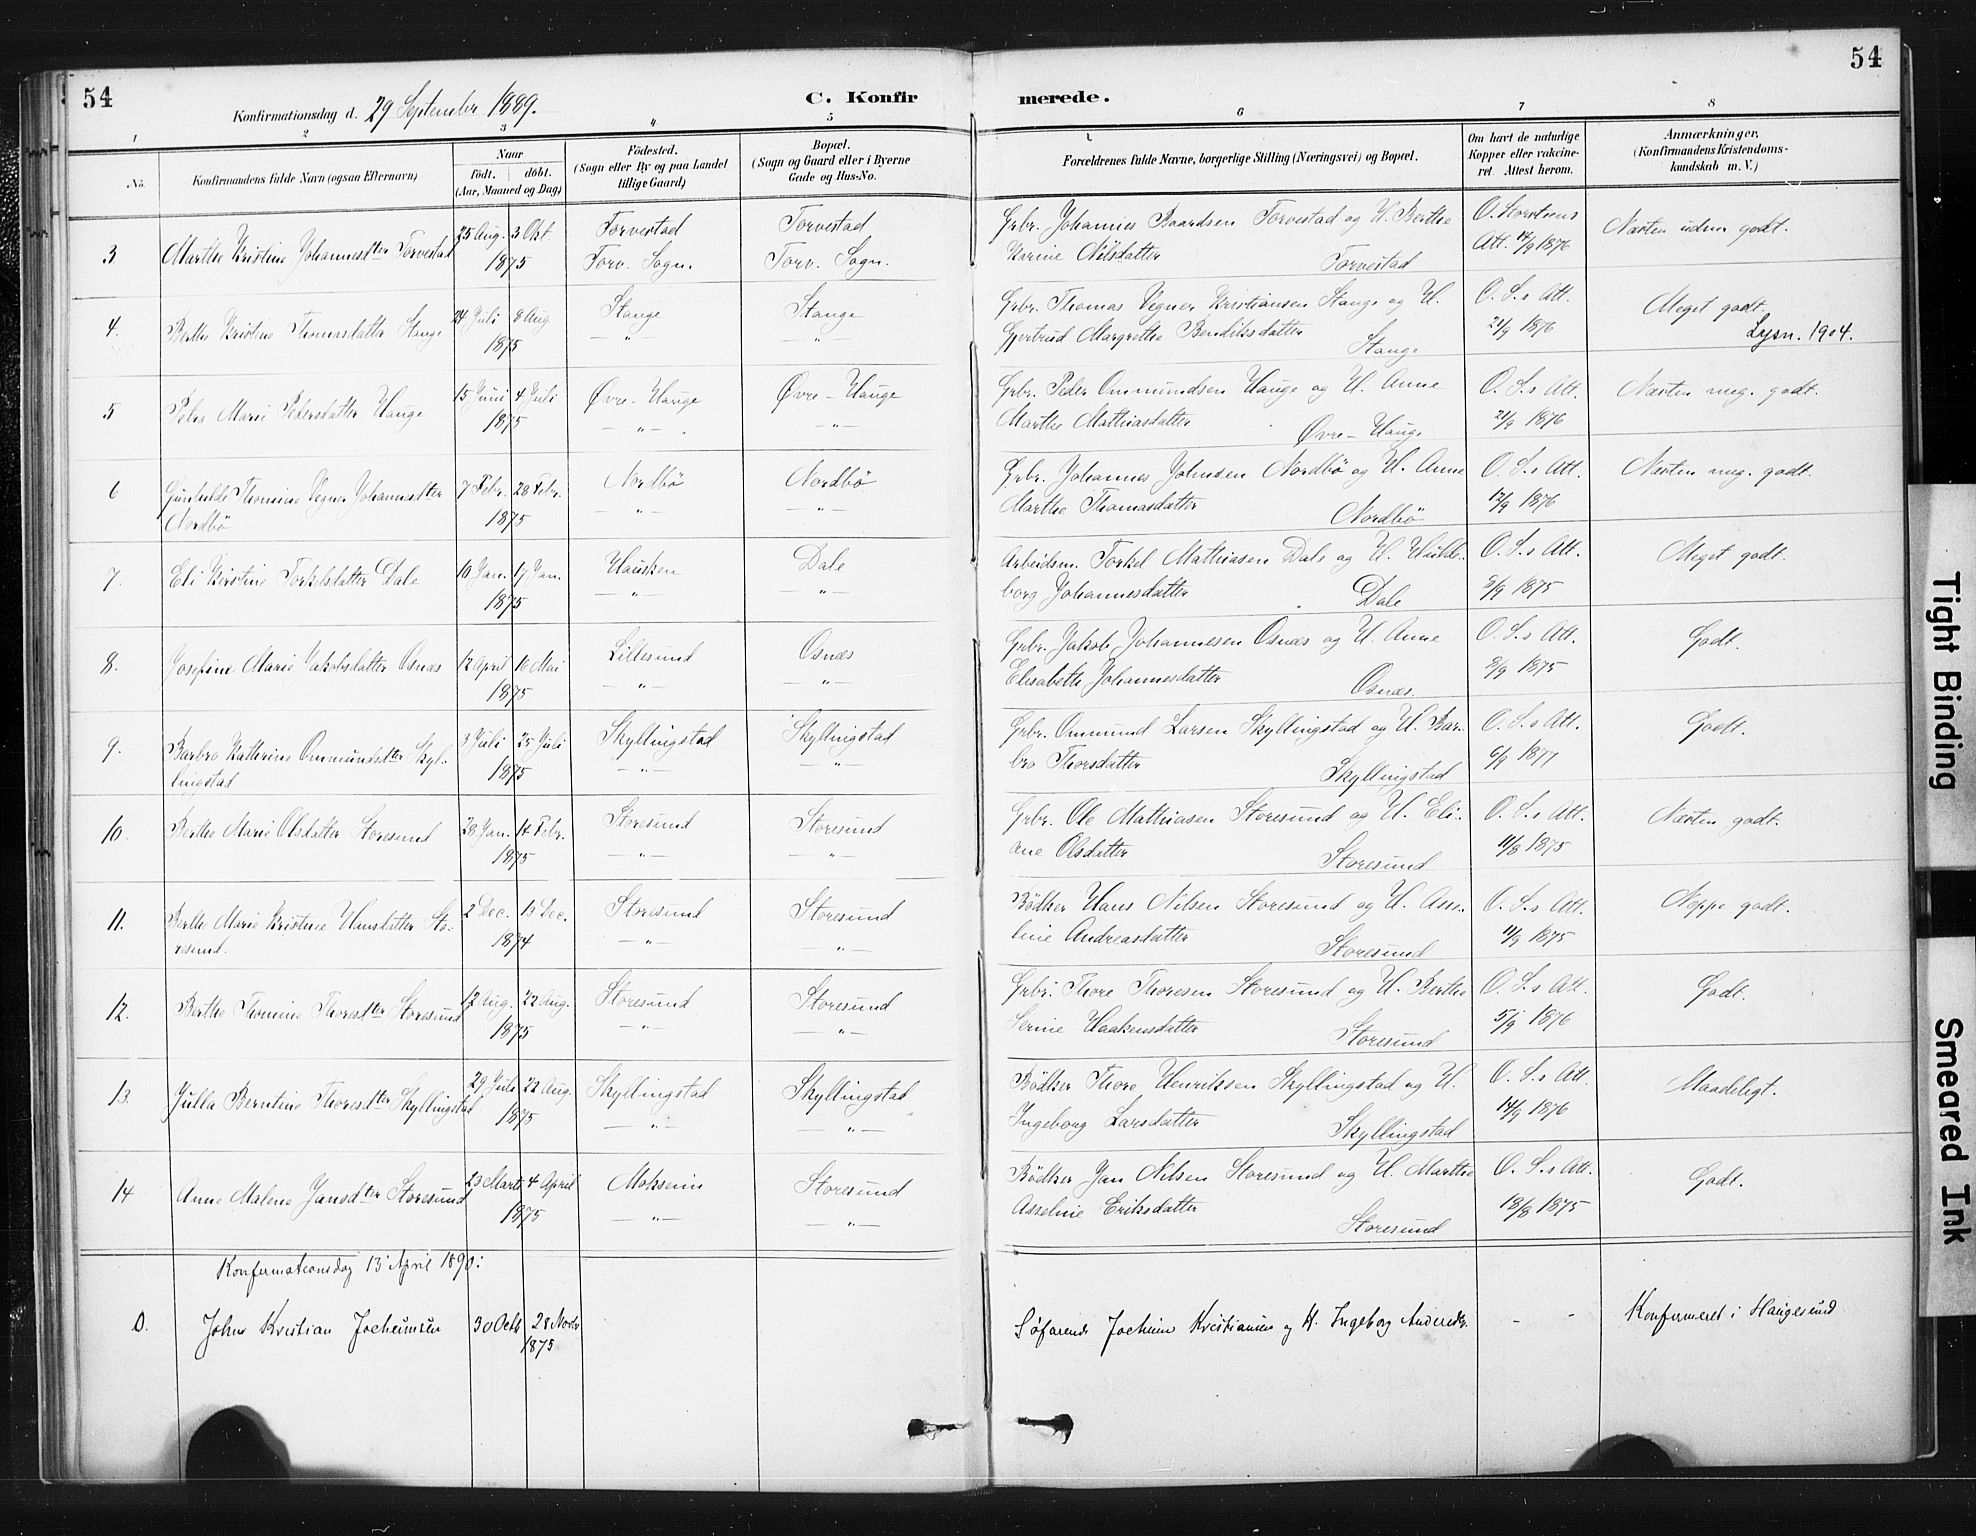 54
Konfirmationsdag d. 29 September 1889.
C. Konfirmerede.
54
1 2 3 4 5 6 7 8
No.
Konfirmandens fulde Navn (ogsaa Efternavn)
Naar
født. døbt.
(Aar, Maaned og Dag)
Fødested.
(Sogn eller By og paa Landet
tillige Gaard)
Bopæl.
(Sogn og Gaard eller i Byerne
Gade og Hus-No.
Forældrenes fulde Navne, borgerlige Stilling (Næringsvei) og Bopæl.
Om havt de naturlige
Kopper eller vakcine-
ret. Attest herom.
Anmærkninger.
(Konfirmandens Kristendoms-
kundskab m. V.)
3 Marthe Kristine Johannesdtr Torvestad
25 Aug. 3 Okt.
1875
Torvestad
Torv. Sogn.
Torvestad
Torv. Sogn.
Grbr. Johannes Baardsen Torvestad og H. Berthe
Karine Nilsdatter Torvestad
O. Storsteens
Att. 14/9 1876
Næsten uden godt.
4. Berthe Kristine Thomasdatter Stange
24 Juli 8 Aug
1875
Stange
— " —
Stange
— " —
Grbr. Thomas Vegner Kristiansen Stange og H.
Gjertrud Margrethe Bendiksdatter Stange
O. S.s Att.
21/9 1876
Meget godt.
Lysn. 1904.
5 Petra Marie Pedersdatter Hauge
15 Juni 4 Juli
1875
Øvre-Hauge
— " —
Øvre-Hauge
— " —
Grbr. Peder Ommundsen Hauge og H. Anne
Marthe Mathiasdatter Øvre-Hauge
O. S.s Att.
21/9 1876
Næsten meg. godt.
6 Gunhilde Thomine Vegner Johannesdtter
Nordbö
7 Febr. 28 Febr.
1875
Nordbö
— " —
Nordbö
— " —
Grbr. Johannes Johnsen Nordbö og H. Anne
Marthe Thomasdatter Nordbö
O. S.s Att.
12/9 1876
Næsten meg. godt
7. Eli Kristine Torkelsdatter Dale
10 Jan. 17 Jan.
1875
Hausken
— " —
Dale
— " —
Arbeidsm. Torkel Mathiasen Dale og H. Huld-
borg Johannesdatter Dale
O. S.s Att.
8/9 1875
Meget godt.
8. Josefine Marie Jakobsdatter Osnæs
12 April 16 Mai
1875
Lillesund
— " —
Osnæs
— " —
Grbr. Jakob Johannesen Osnæs og H. Anne
Elisabeth Johannesdatter Osnæs.
O. S.s Att.
8/9 1875
Godt.
9. Barbro Katherine Ommundsdtr Skyl-
lingstad
3 Juli 25 Juli
1875
Skyllingstad
— " —
Skyllingstad
— " —
Grbr. Ommund Larsen Skyllingstad og H. Bar-
bro Thorsdatter Skyllingstad
O. S.s Att.
6/9 1877
Godt.
10. Berthe Marie Olsdatter Storesund
28 Jan. 14 Febr.
1875
Storesund
— " —
Storesund
— " —
Grbr. Ole Mathiasen Storesund og H. Eli-
ane Olsdatter Storesund
O. S.s Att.
11/8 1875
Næsten godt.
11. Berthe Marie Kristine Hansdatter Sto-
resund.
2 Dec. 13 Dec.
1874
Storesund
— " —
Storesund
— " —
Bödker Hans Nilsen Storesund og H. Asse-
line Andreasdatter Storesund
O. S.s Att.
11/9 1875
Neppe godt.
12. Berthe Thomine Thoresdtr Storesund
12 Aug. 22 Aug.
1875
Storesund
— " —
Storesund
— " —
Grbr. Thore Thoresen Storesund og H. Berthe
Serine Haakensdatter Storesund
O. S.s Att.
5/9 1876
Godt.
13. Julla Berntine Thoresdtr Skyllingstad
29 Juli 22 Aug.
1875
Skyllingstad
— " —
Skyllingstad
— " —
Bödker Thore Henrikssen Skyllingstad og H.
Ingeborg Larsdatter Skyllingstad
O. S.s Att.
14/9 1876
Maadeligt.
14 Anne Malene Jansdtr Storesund
23 Marts 4 April
1875
Moksein
— " —
Storesund
— " —
Bödker Jan Nilsen Storesund og H. Marthe
Asseline Eriksdatter Storesund
O. S.s Att.
18/8 1875
Godt.
Konfirmationsdag 13 April 1890:
0. John Kristian Jocheimsen
30 Octb 28 Novbr
1875
Søfarende Jocheim Kristiansen og H. Ingeborg Andersdr.
- -
Konfirmeret i Haugesund
Tight Binding
Smeared Ink